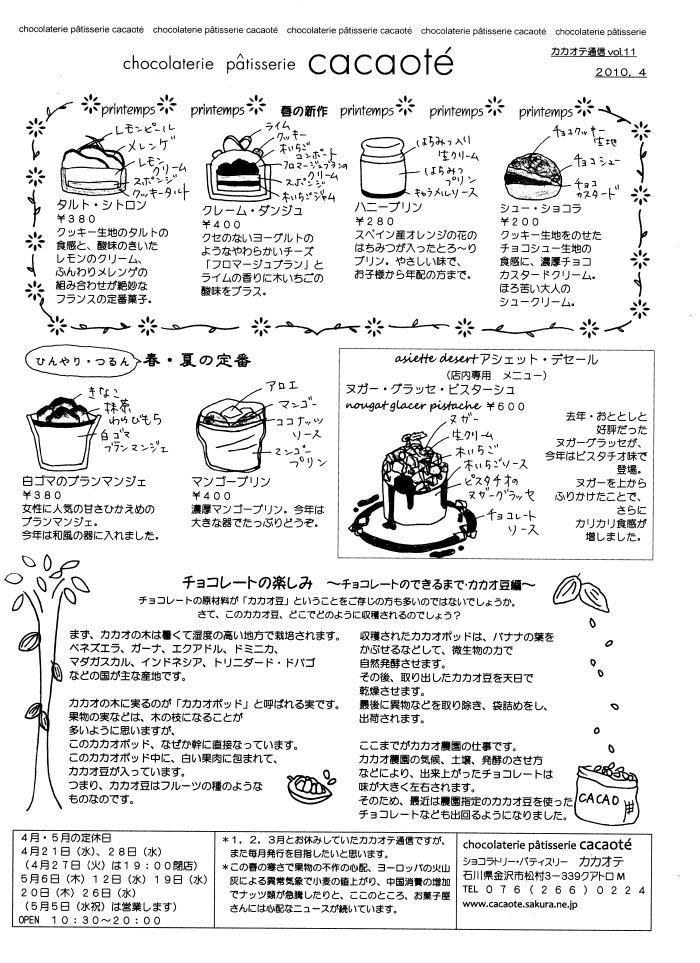 chocolaterie pâtisserie cacaoté chocolaterie pâtisserie cacaoté chocolaterie pâtisserie cacaoté chocolaterie pâtisserie cacaoté chocolaterie pâtisserie
カカオテ通信 vol.11
chocolaterie pâtisserie cacaoté
2010. 4
printemps printemps 春の新作 printemps printemps printemps
レモンピール
メレンゲ
レモンクリーム
スポンジ
クッキータルト
タルト・シトロン
¥380
クッキー生地のタルトの
食感と、酸味のきいた
レモンのクリーム、
ふんわりメレンゲの
組み合わせが絶妙な
フランスの定番菓子。
ライム
クッキー
木いちごコンポート
フロマージュブランのクリーム
スポンジ
木いちごジャム
クレーム・ダンジュ
¥200
クセのないヨーグルトの
ようなやわらかいチーズ
「フロマージュブラン」と
ライムの香りに木いちごの
酸味をプラス。
はちみつ入り
生クリーム
はちみつ
プリン
キャラメルソース
ハニープリン
¥280
スペイン産オレンジの花の
はちみつが入ったとろ～り
プリン。やさしい味で、
お子様から年配の方まで。
チョコクッキー
生地
チョコシュー
チョコ
カスタード
シュー・ショコラ
¥200
クッキー生地をのせた
チョコシュー生地の
食感に、濃厚チョコ
カスタードクリーム。
ほろ苦い大人の
シュークリーム。
ひんやり・つるん 春・夏の定番
きなこ
抹茶
わらびもち
白ゴマ
ブランマンジェ
白ゴマのブランマンジェ
¥380
女性に人気の甘さひかえめの
ブランマンジェ。
今年は和風の器に入れました。
アロエ
マンゴー
ココナッツ
ソース
マンゴー
プリン
マンゴープリン
¥400
濃厚マンゴープリン。今年は
大きな器でたっぷりどうぞ。
asiette desert アシェット・デセール
（店内専用 メニュー）
ヌガー・グラッセ・ピスターシュ
nougat glacer pistache ¥600
ヌガー
生クリーム
木いちご
木いちごソース
ピスタチオの
ヌガーグラッセ
チョコレート
ソース
去年・おととしと
好評だった
ヌガーグラッセが、
今年はピスタチオ味で
登場。
ヌガーを上から
ふりかけたことで、
さらに
カリカリ食感が
増しました。
チョコレートの楽しみ ～チョコレートのできるまで・カカオ豆編～
チョコレートの原材料が「カカオ豆」ということをご存じの方も多いのではないでしょうか。
さて、このカカオ豆、どこでどのように収穫されるのでしょう？
まず、カカオの木は暑くて湿度の高い地方で栽培されます。
ベネズエラ、ガーナ、エクアドル、ドミニカ、
マダガスカル、インドネシア、トリニダード・ドバゴ
などの国が主な産地です。
カカオの木に実るのが「カカオポッド」と呼ばれる実です。
果物の実などは、木の枝になることが
多いように思いますが、
このカカオポッド、なぜか幹に直接なっています。
このカカオポッド中に、白い果肉に包まれて、
カカオ豆が入っています。
つまり、カカオ豆はフルーツの種のような
ものなのです。
収穫されたカカオポッドは、バナナの葉を
かぶせるなどして、微生物の力で
自然発酵させます。
その後、取り出したカカオ豆を天日で
乾燥させます。
最後に異物などを取り除き、袋詰めをし、
出荷されます。
ここまでがカカオ農園の仕事です。
カカオ農園の気候、土壌、発酵のさせ方
などにより、出来上がったチョコレートは
味が大きく左右されます。
そのため、最近は農園指定のカカオ豆を使った
チョコレートなども出回るようになりました。
CACAO
4月・5月の定休日
4月21日（水）、28日（水）
（4月27日（火）は19：00閉店）
5月6日（木）12日（水）19日（水）
20日（木）26日（水）
（5月5日（水祝）は営業します）
OPEN 10：30～20：00
＊1．2．3月とお休みしていたカカオテ通信ですが、
また毎月発行を目指したいと思います。
＊この春の寒さで果物の不作の心配、ヨーロッパの火山
灰による異常気象で小麦の値上がり、中国消費の増加
でナッツ類が急騰したりと、ここのところ、お菓子屋
さんには心配なニュースが続いています。
chocolaterie pâtisserie cacaoté
ショコラトリー・パティスリー カカオテ
石川県金沢市松村3－339クアトロM
TEL 076（266）0224
www.cacaote.sakura.ne.jp